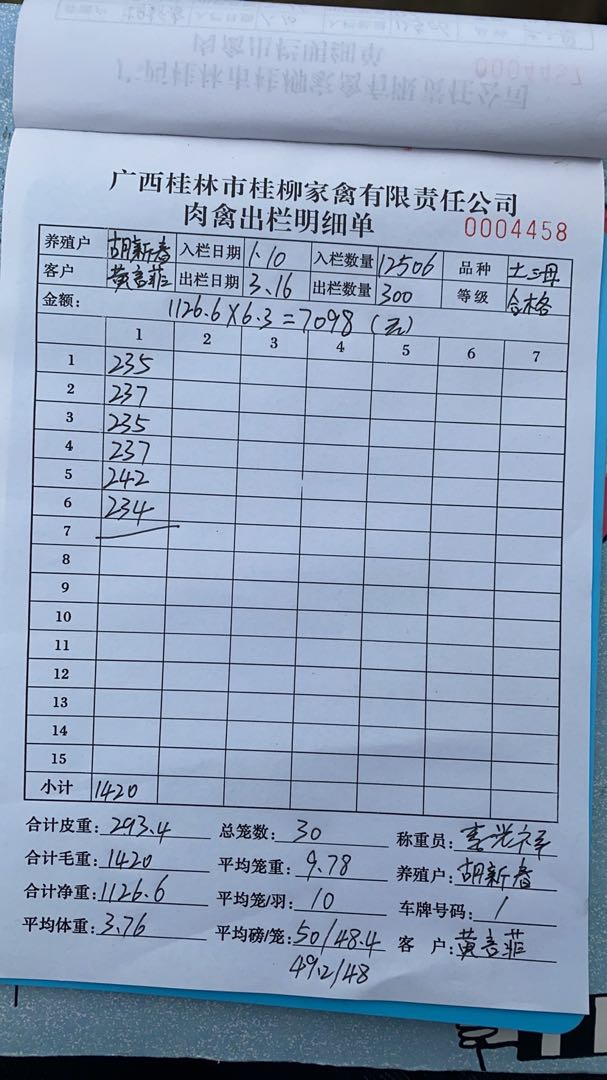 广西桂林市桂柳家禽有限责任公司
肉禽出栏明细单
0004457
广西桂林市桂柳家禽有限责任公司
肉禽出栏明细单 0004458
养殖户 胡新春 入栏日期 1.10 入栏数量 12506 品种 土三母
客户 黄言菲 出栏日期 3.16 出栏数量 300 等级 合格
金额: 1126.6×6.3=7098(元)
1 2 3 4 5 6 7
1 235
2 237
3 235
4 237
5 242
6 234
7
8
9
10
11
12
13
14
15
小计 1420
合计皮重: 293.4 总笼数: 30 称重员: 李光祥
合计毛重: 1420 平均笼重: 9.78 养殖户: 胡新春
合计净重: 1126.6 平均笼/羽: 10 车牌号码: /
平均体重: 3.76 平均磅/笼: 50/48.4 客 户: 黄言菲
49.2/48